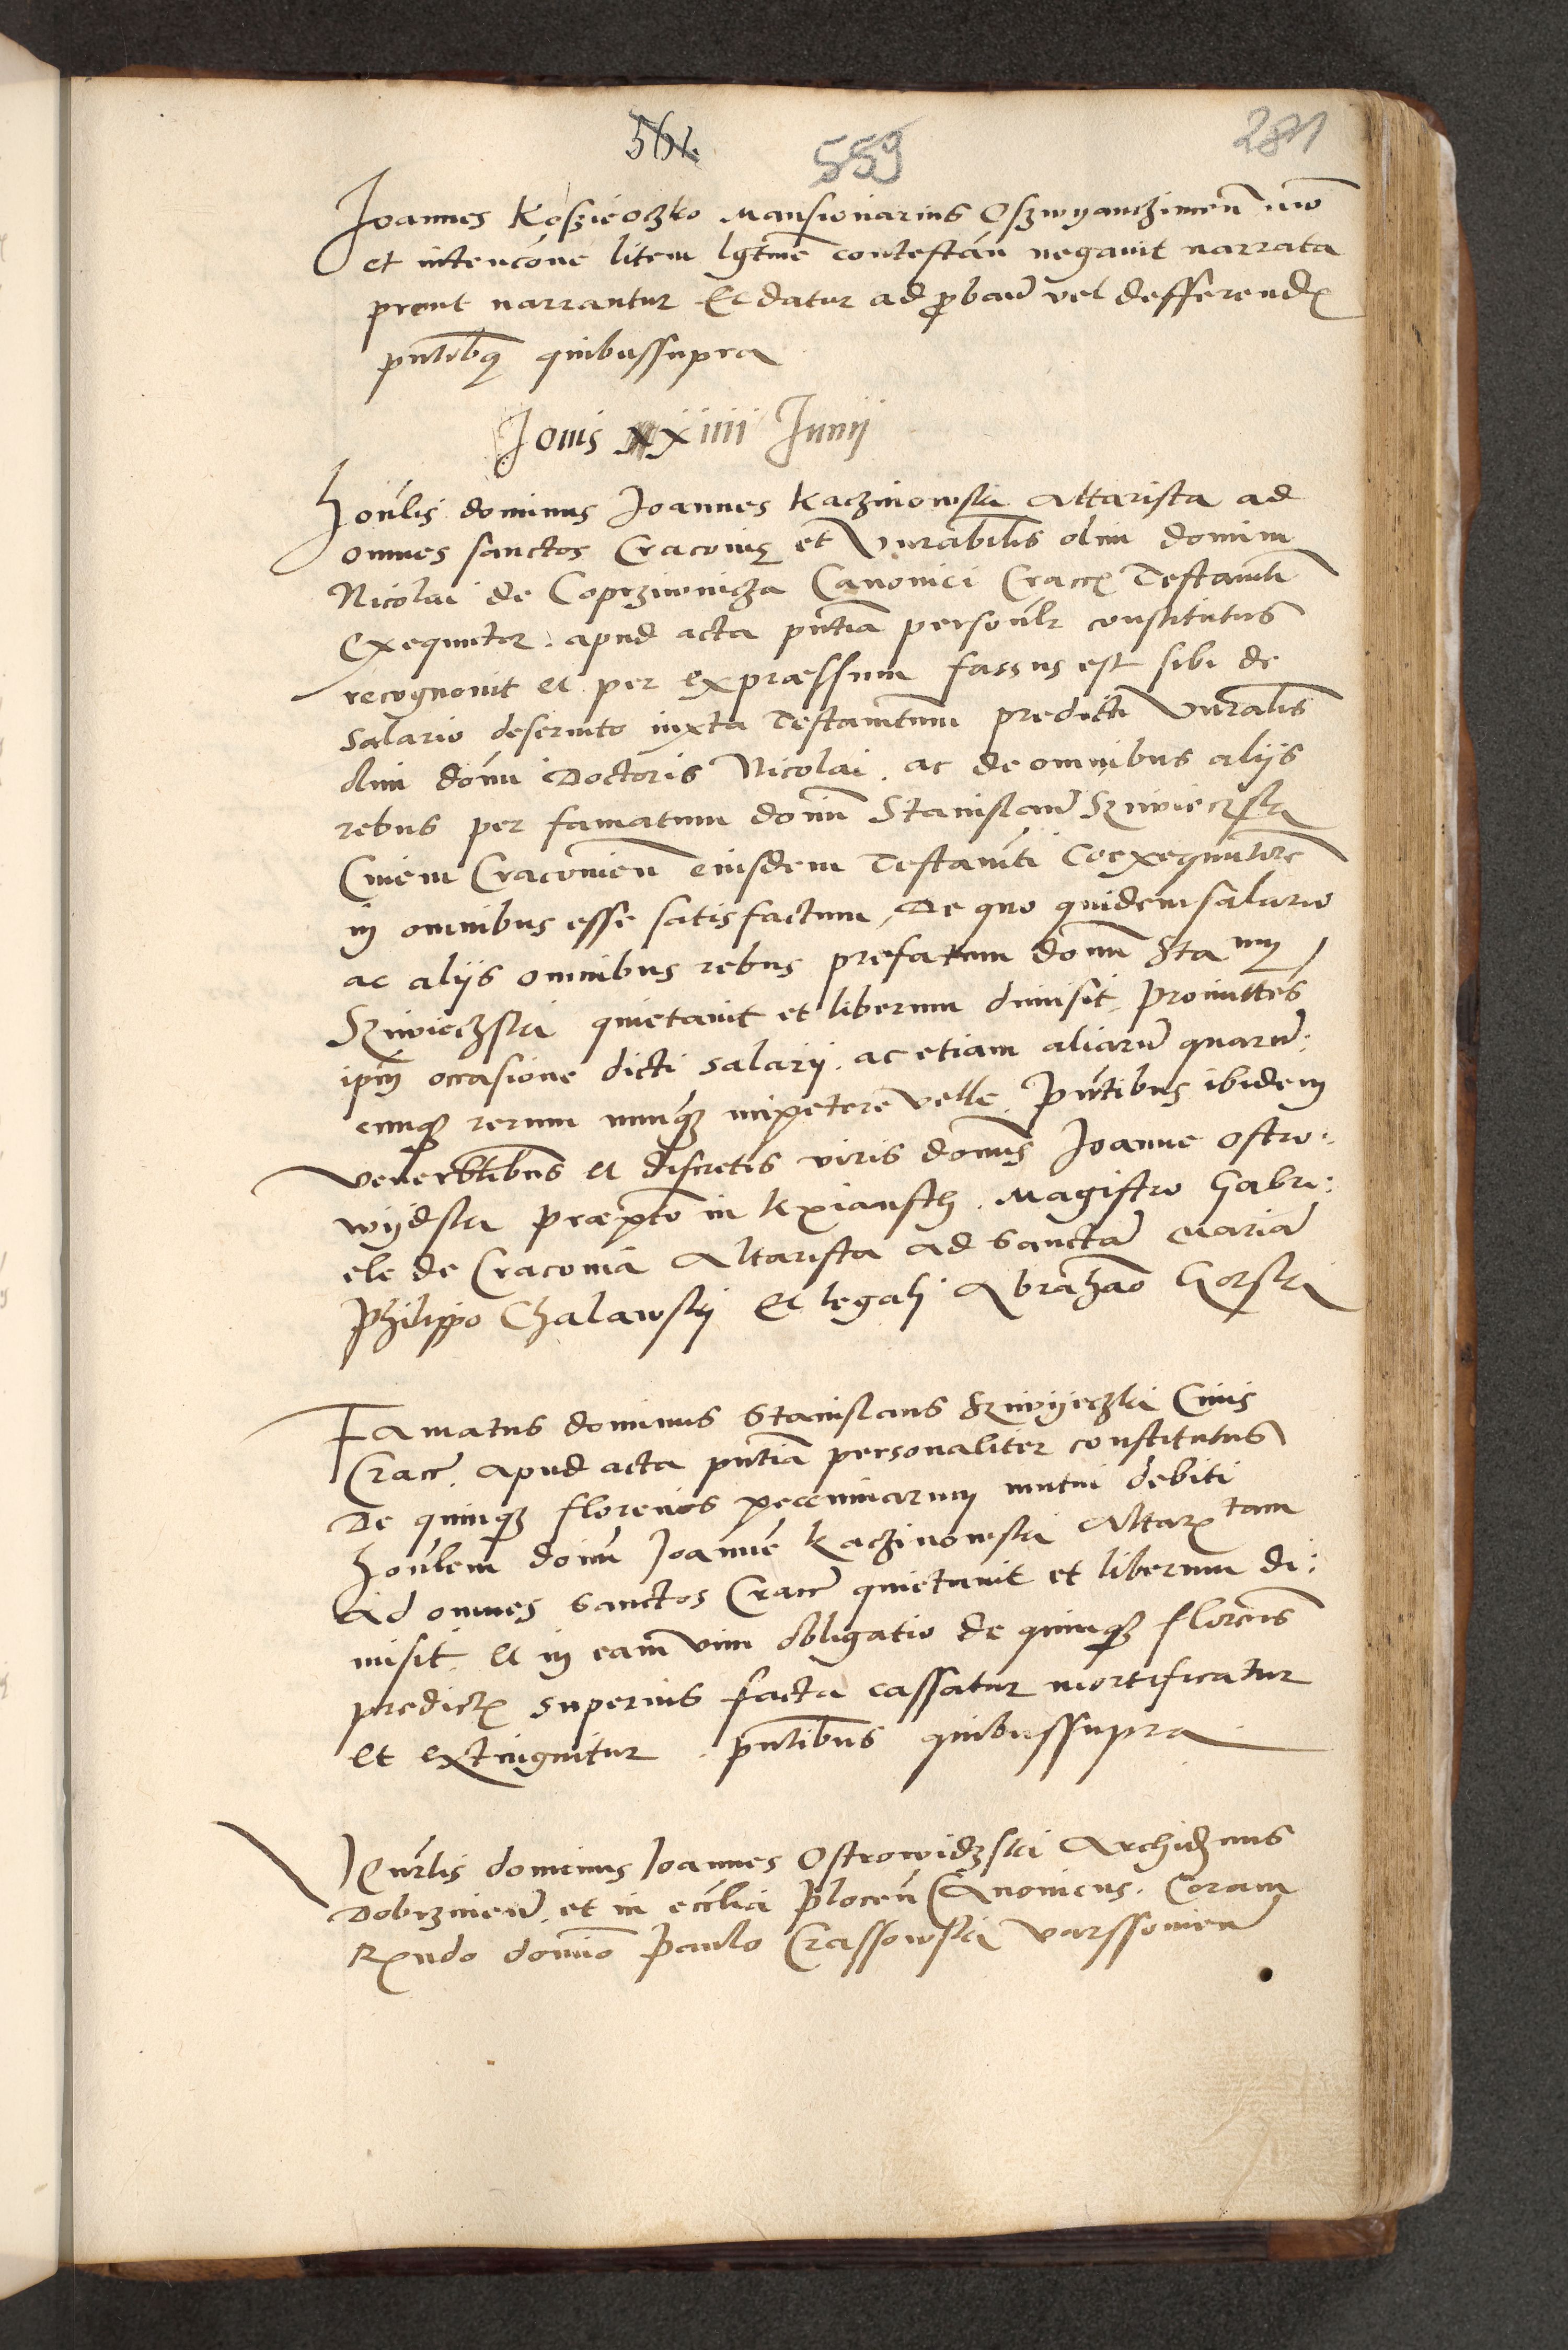 561. 559 281
Joannes Koszieczko Mansionarius Oszwyanczimen̄ mō
et intencōne litem lgtme contestān negavit narrata
prout narrantur Et datur ad ꝓband vel defferend
pntibꝰ quibussupra
Jovis xxiiii Junij
honlis dominus Joannes Kaczinowski altarista ad
omnes sanctos Cracovię et Vnrabilis olim domini
Nicolai de Coprziwnicza Canonici Cracc Testamti
Exequutor. apud acta pntia personlr constitutus
recognovit et per expraessum fassus est sibi de
salario deservito iuxta Testamtum predicti Vnralis
olim domi Doctoris Nicolai. ac de omnibus alijs
rebus per famatum domi Stanislau Szwieczski
Civem Cracovien eiusdem Testamti Coexequutore
in omnibus esse satisfactum, De quo quidem salario
ac alijs omnibus rebus prefatum domi Sta um
Szwieczski quietavit et liberum dimisit, promittens
ipm occasione dicti salarij. ac etiam aliaru quaru:
cunqꝫ rerum nunqꝫ impetere velle. Pntibus ibidem
Venerbtibus et discretis viris domis Joanne Ostro:
wijdski praepto in Kxiansth. Magistro Gabri:
ele de Cracovia Altarista ad Sancta Maria
Philippo Chalawskij Et legali Abrahao Gorski
Famatus dominus Stanislaus Szwyieczki Civis
Cracc apud acta pntia personaliter constitutus
De quinqꝫ florenos pecuniarum mutui debiti
honlem domi Joanne Kaczinowski Altar tam
ad omnes Sanctos Cracc quietavit et liberum di:
misit. Et in eam vim obligatio de quinqꝫ florenis
predict superius facta cassatur mortificatur
et extinguitur. pntibus quibussupra
Vnrlis dominus Joannes Ostrowidzski Archidnus
Dobrzinen. et in ecclia Plocen Canonicus. Coram
Rndo domio Paulo Crassowski Varssovien